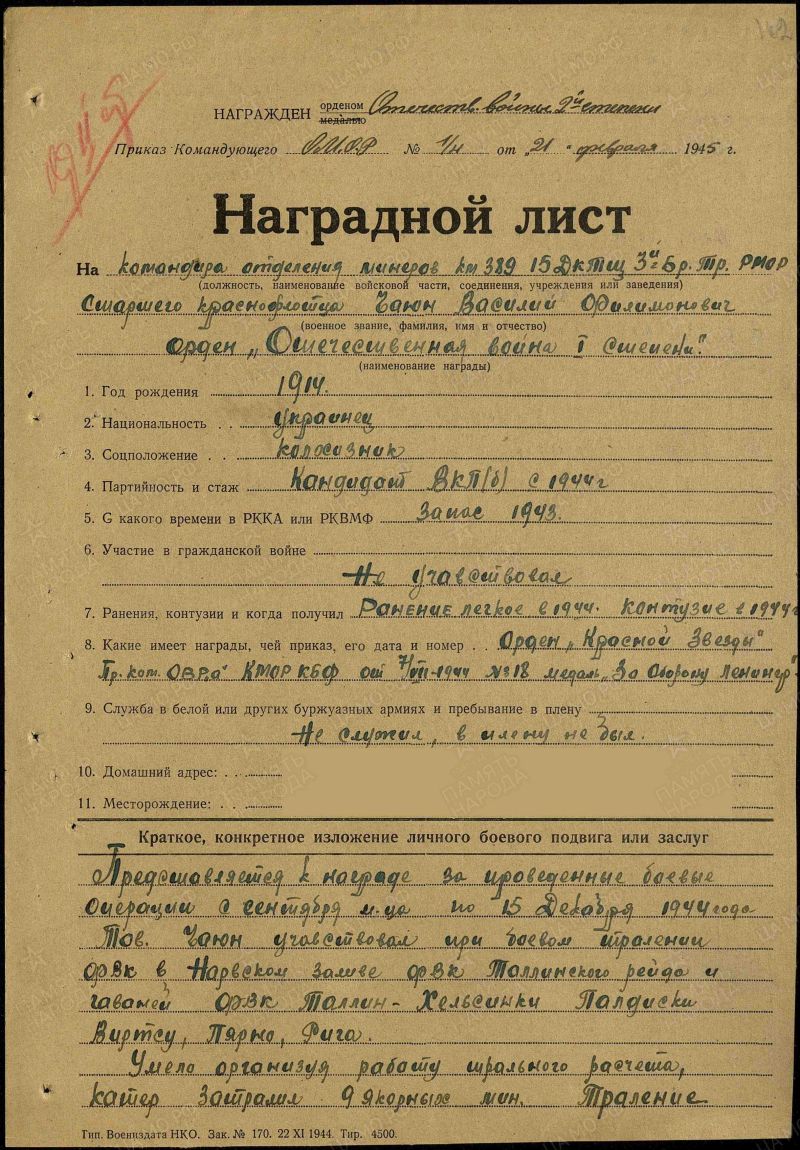 162
НАГРАЖДЕН орденом медалью Отечеств. войны 2й степени
Приказ Командующего № 1/н от "21" февраля 1945 г.
Наградной лист
На командира отделения минеров км 389 15 ДКТЩ 3й Бр. Тр. РМОР
(должность, наименование войсковой части, соединения, учреждения или заведения)
Старшего краснофлотца Чаюн Василий Филимонович
(военное звание, фамилия, имя и отчество)
Орден „Отечественная война I степени."
(наименование награды)
1. Год рождения 1914.
2. Национальность . . украинец
3. Соцположение . . колхозник
4. Партийность и стаж Кандидат ВКП(б) с 1944 г
5. С какого времени в РККА или РКВМФ Запас 1943.
6. Участие в гражданской войне
Не учавствовал
7. Ранения, контузии и когда получил Ранение легкое в 1944. контузие в 1944 г
8. Какие имеет награды, чей приказ, его дата и номер . . Орден „Красной Звезды"
Пр. ком. ОВРа КМОР КБФ от 7/VIII-1944 №18 медаль „За Оборону Ленингр".
9. Служба в белой или других буржуазных армиях и пребывание в плену
Не служил, в плену не был.
10. Домашний адрес: . .
11. Месторождение: . .
Краткое, конкретное изложение личного боевого подвига или заслуг
Представляется к награде за проведенные боевые
операции с сентября м-ца по 15 Декабря 1944 года
Тов. Чаюн учавствовал при боевом тралении
ФВК в Нарвском заливе ФВК Таллинского рейда и
гаваней ФВК Таллин - Хельсинки Палдиски
Виртсу, Пярно, Рига.
Умело организуя работу трального расчета,
катер затралил 9 якорных мин. Траление
Тип. Воениздата НКО. Зак. № 170. 22 XI 1944. Тир. 4500.